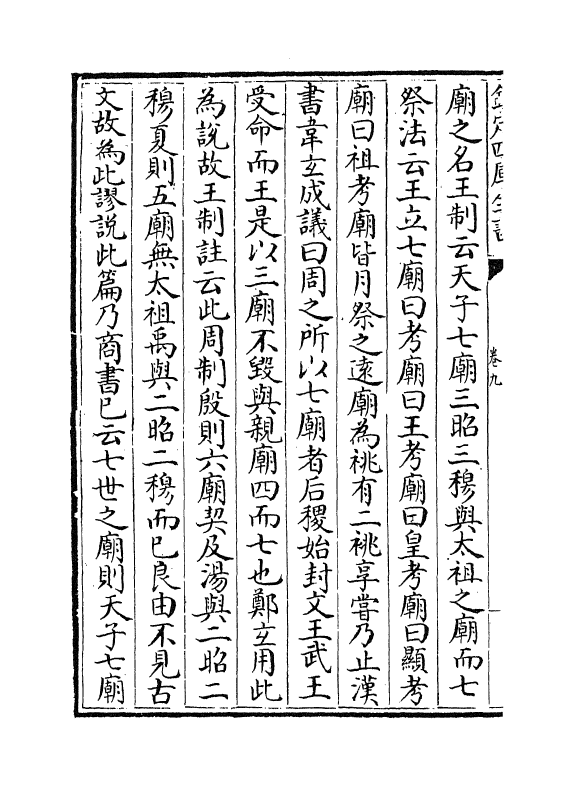 欽定四庫全書
卷九
廟之名王制云天子七廟三昭三穆與太祖之廟而七
祭法云王立七廟曰考廟曰王考廟曰皇考廟曰顯考
廟曰祖考廟皆月祭之逺廟為祧有二祧享嘗乃止漢
書韋玄成議曰周之所以七廟者后稷始封文王武王
受命而王是以三廟不毀與親廟四而七也鄭玄用此
為說故王制註云此周制殷則六廟契及湯與二昭二
穆夏則五廟無太祖禹與二昭二穆而已良由不見古
文故為此謬說此篇乃商書已云七世之廟則天子七廟